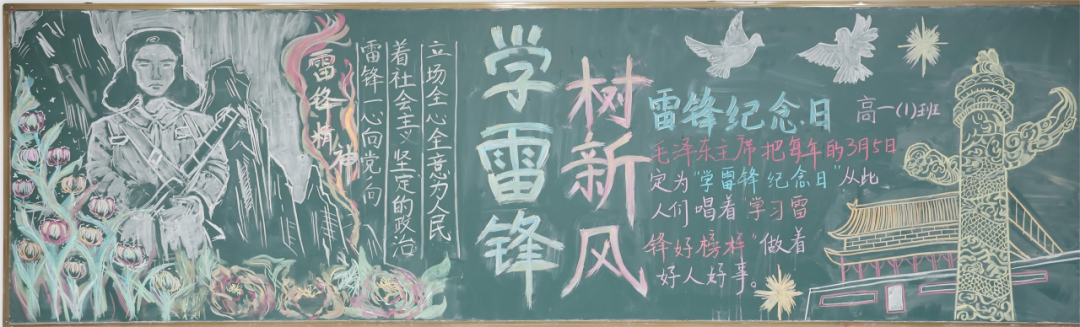 雷锋精神
雷锋一心向党向
着社会主义坚定的政治
立场全心全意为人民
学雷锋
树新风
雷锋纪念日
高一(1)班
毛泽东主席把每年的3月5日
定为"学雷锋纪念日"从此
人们唱着学习雷
锋好榜样"做着
好人好事。